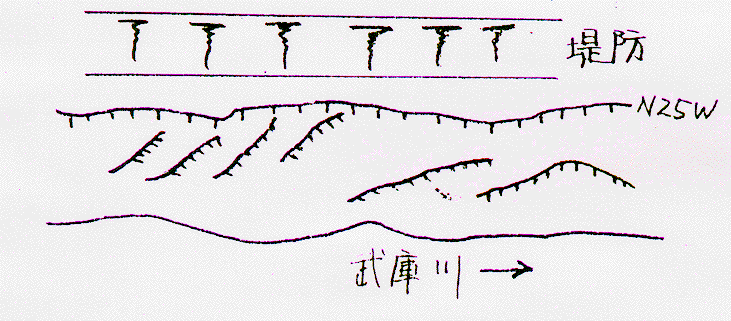 堤防
N25W
武庫川 →